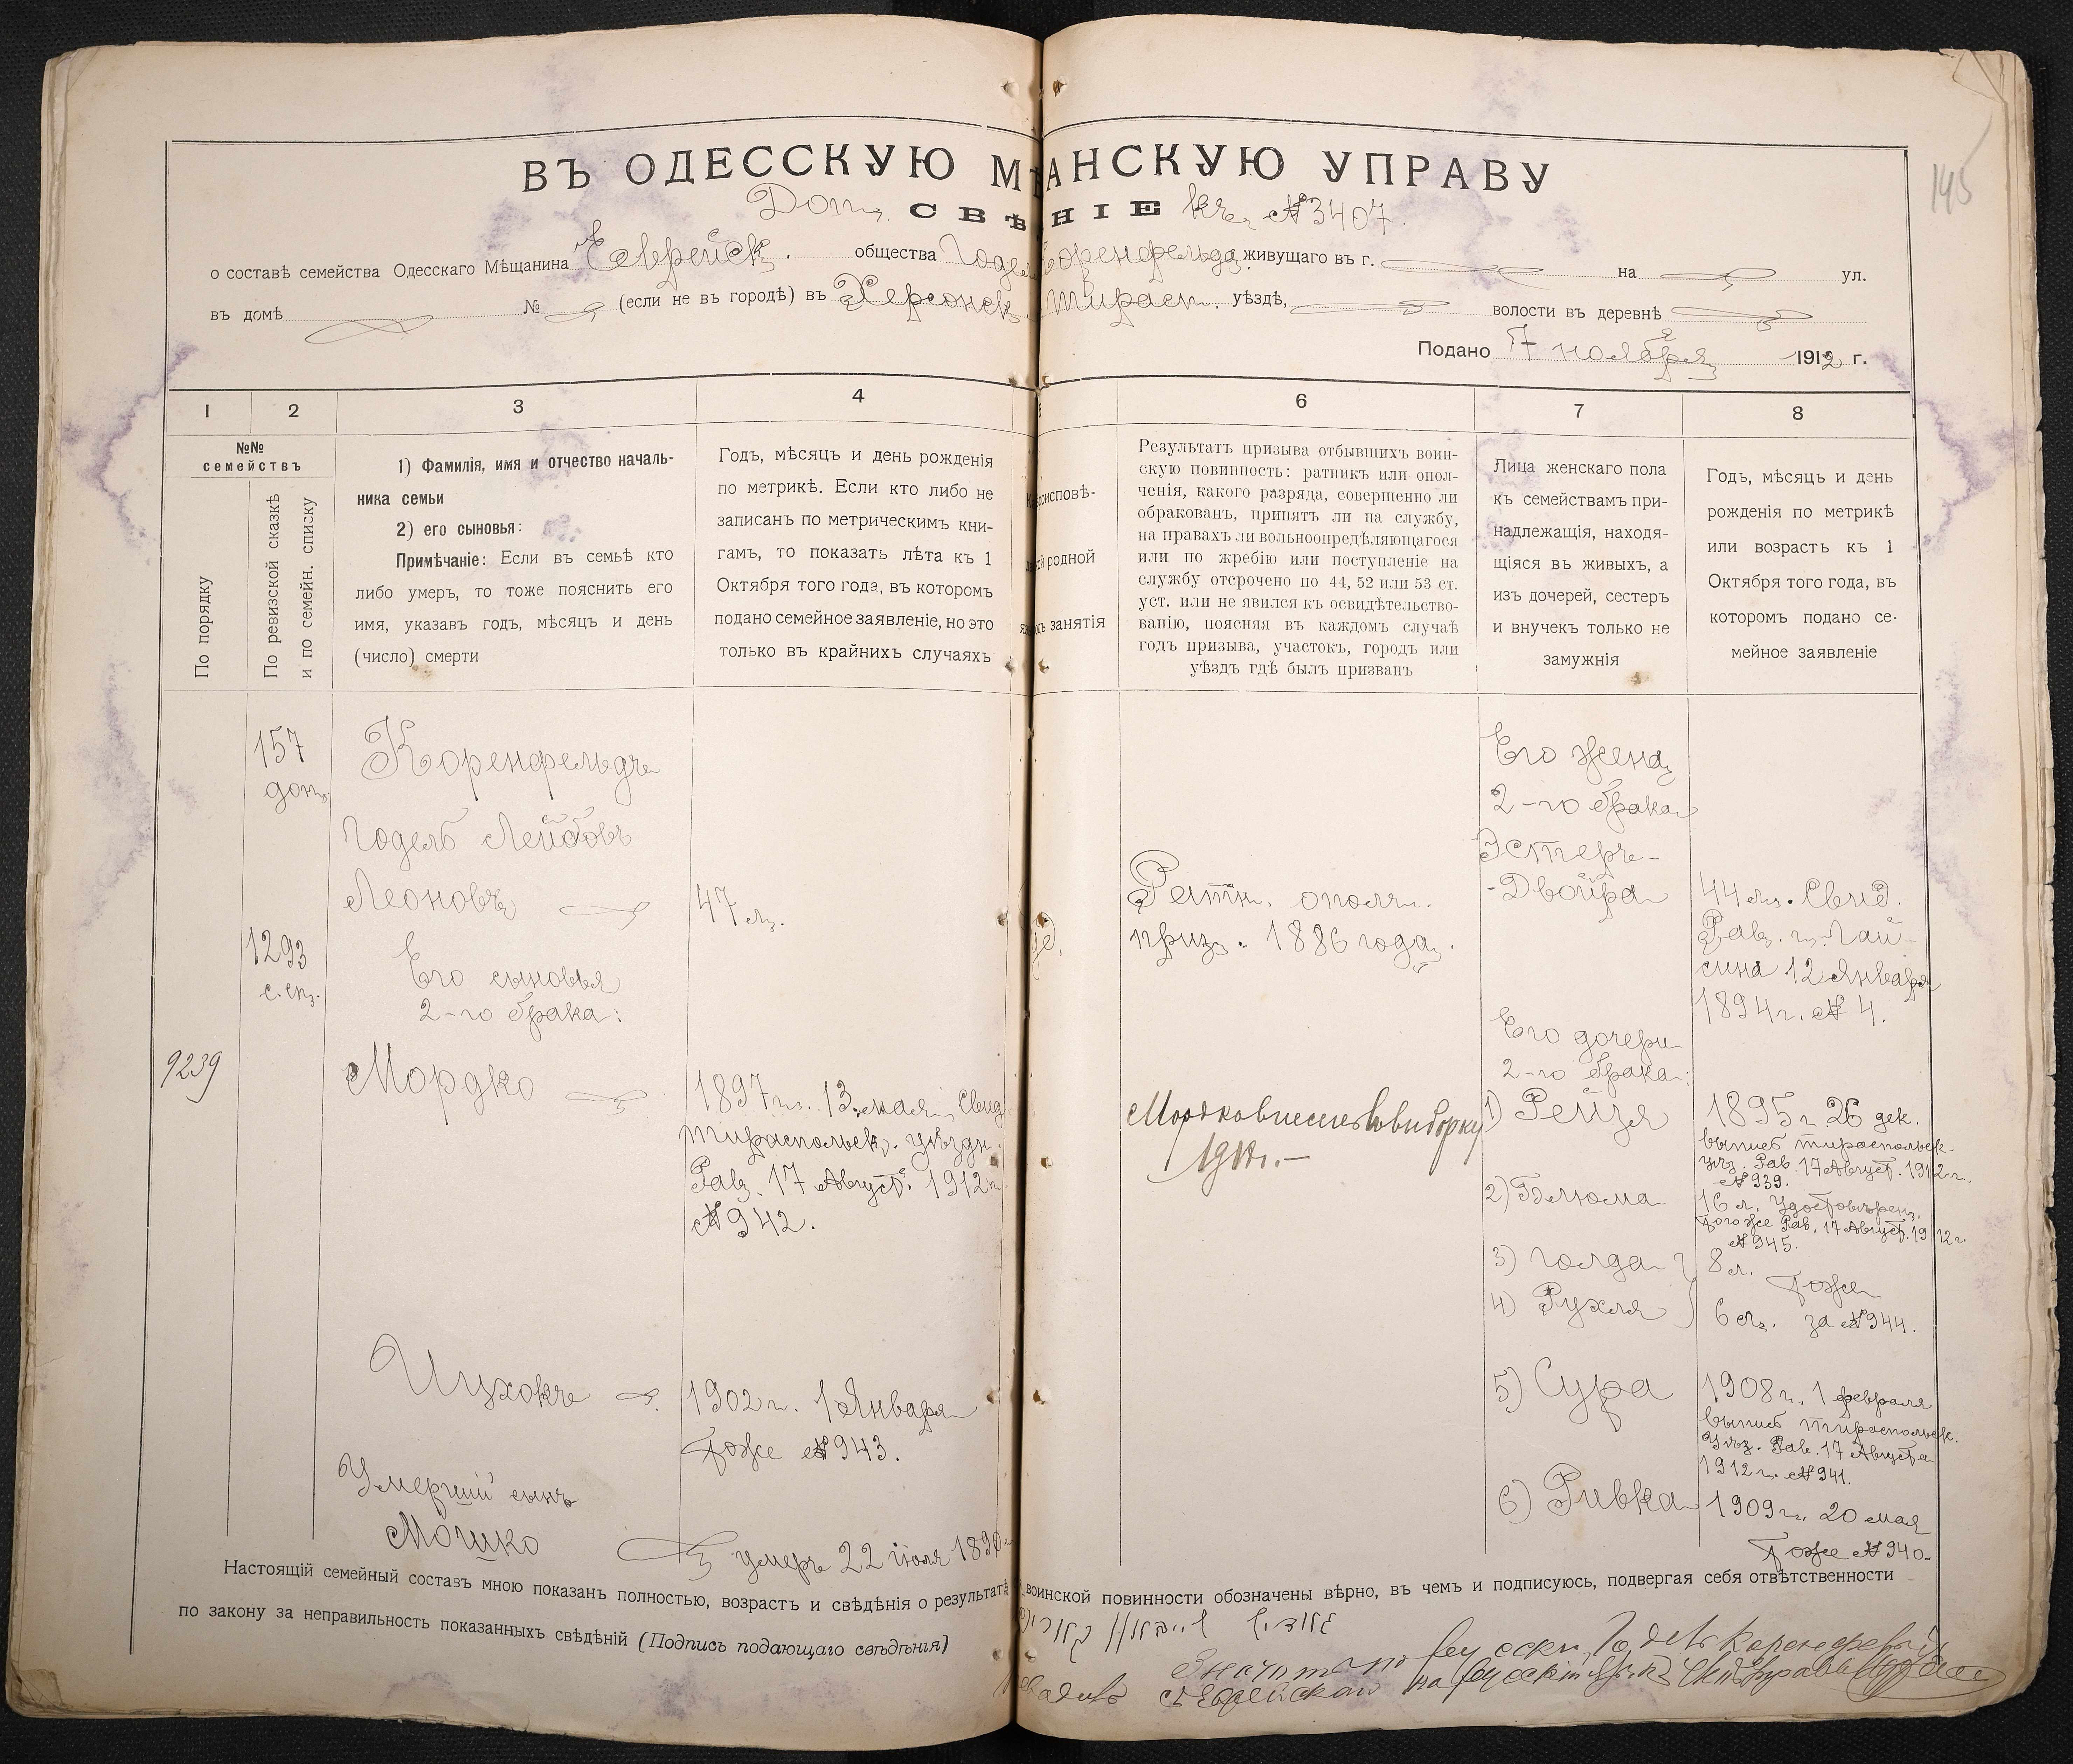 145
ВЪ ОДЕССКУЮ М АНСКУЮ УПРАВУ
Доп. СВѢ НІЕ къ № 3407.
о составѣ семейства Одесскаго Мѣщанина Еврейск. общества Годел Коренфельда живущаго въ г. на ул.
въ домѣ № (если не въ городѣ) въ Херсонск. Тирасп. уѣздѣ, волости въ деревнѣ
Подано 7 ноября 1912 г.
1 2 3 4 5 6 7 8
№№
семействъ
По порядку
По ревизской сказкѣ
и по семейн. списку
1) Фамилія, имя и отчество началь-
ника семьи
2) его сыновья:
Примѣчаніе: Если въ семьѣ кто
либо умеръ, то тоже пояснить его
имя, указавъ годъ, мѣсяцъ и день
(число) смерти
Годъ, мѣсяцъ и день рожденія
по метрикѣ. Если кто либо не
записанъ по метрическимъ кни-
гамъ, то показать лѣта къ 1
Октября того года, въ которомъ
подано семейное заявленіе, но это
только въ крайнихъ случаяхъ
роисповѣ-
ой родной
дъ занятія
Результатъ призыва отбывшихъ воин-
скую повинность: ратникъ или опол-
ченія, какого разряда, совершенно ли
обракованъ, принятъ ли на службу,
на правахъ ли вольноопредѣляющагося
или по жребію или поступленіе на
службу отсрочено по 44, 52 или 53 ст.
уст. или не явился къ освидѣтельство-
ванію, поясняя въ каждомъ случаѣ
годъ призыва, участокъ, городъ или
уѣздъ гдѣ былъ призванъ
Лица женскаго пола
къ семействамъ при-
надлежащія, находя-
щіяся въ живыхъ, а
изъ дочерей, сестеръ
и внучекъ только не
замужнія
Годъ, мѣсяцъ и день
рожденія по метрикѣ
или возрастъ къ 1
Октября того года, въ
которомъ подано се-
мейное заявленіе
157
доп.
1293
с. сп.
9239
Коренфельдъ
Годель Лейбовъ
Леоновъ
Его сыновья
2-го брака:
Мордко
Ицхокъ
Умершій сынъ
Мошко
47 л.
1897 г. 13 мая, Свид.
Тираспольск. уѣздн.
Рав. 17 Август. 1912 г.
№ 942.
1902 г. 1 Января
Тоже № 943.
умеръ 22 іюля 1890
Ратн. ополч.
призв. 1886 года.
Мордко внесенъ въ выборку
Его жена
2-го брака
Эстеръ-
-Двойра
Его дочери
2-го брака:
1) Рейзя
2) Блюма
3) Голда
4) Рухля
5) Сура
6) Ривка
44 л. Свид.
Рав. г. Гай-
сина 12 Января
1894 г. № 4.
1895 г. 26 дек.
выпись Тираспольск.
уѣз. Рав. 17 Август. 1912 г.
№ 939.
16 л. Удостовѣрен.
того же Рав. 17 Август. 1912 г.
№ 945.
8 л. Тоже
6 л. за № 944.
1908 г. 1 февраля
выпись Тираспольск.
Уѣз. Рав. 17 Августа
1912 г. № 941.
1909 г. 20 мая
Тоже № 940.
Настоящій семейный составъ мною показанъ полностью, возрастъ и свѣдѣнія о результатѣ воинской повинности обозначены вѣрно, въ чемъ и подписуюсь, подвергая себя отвѣтственности
по закону за неправильность показанныхъ свѣдѣній (Подпись подающаго свѣдѣнія)
Годель Коренфельд